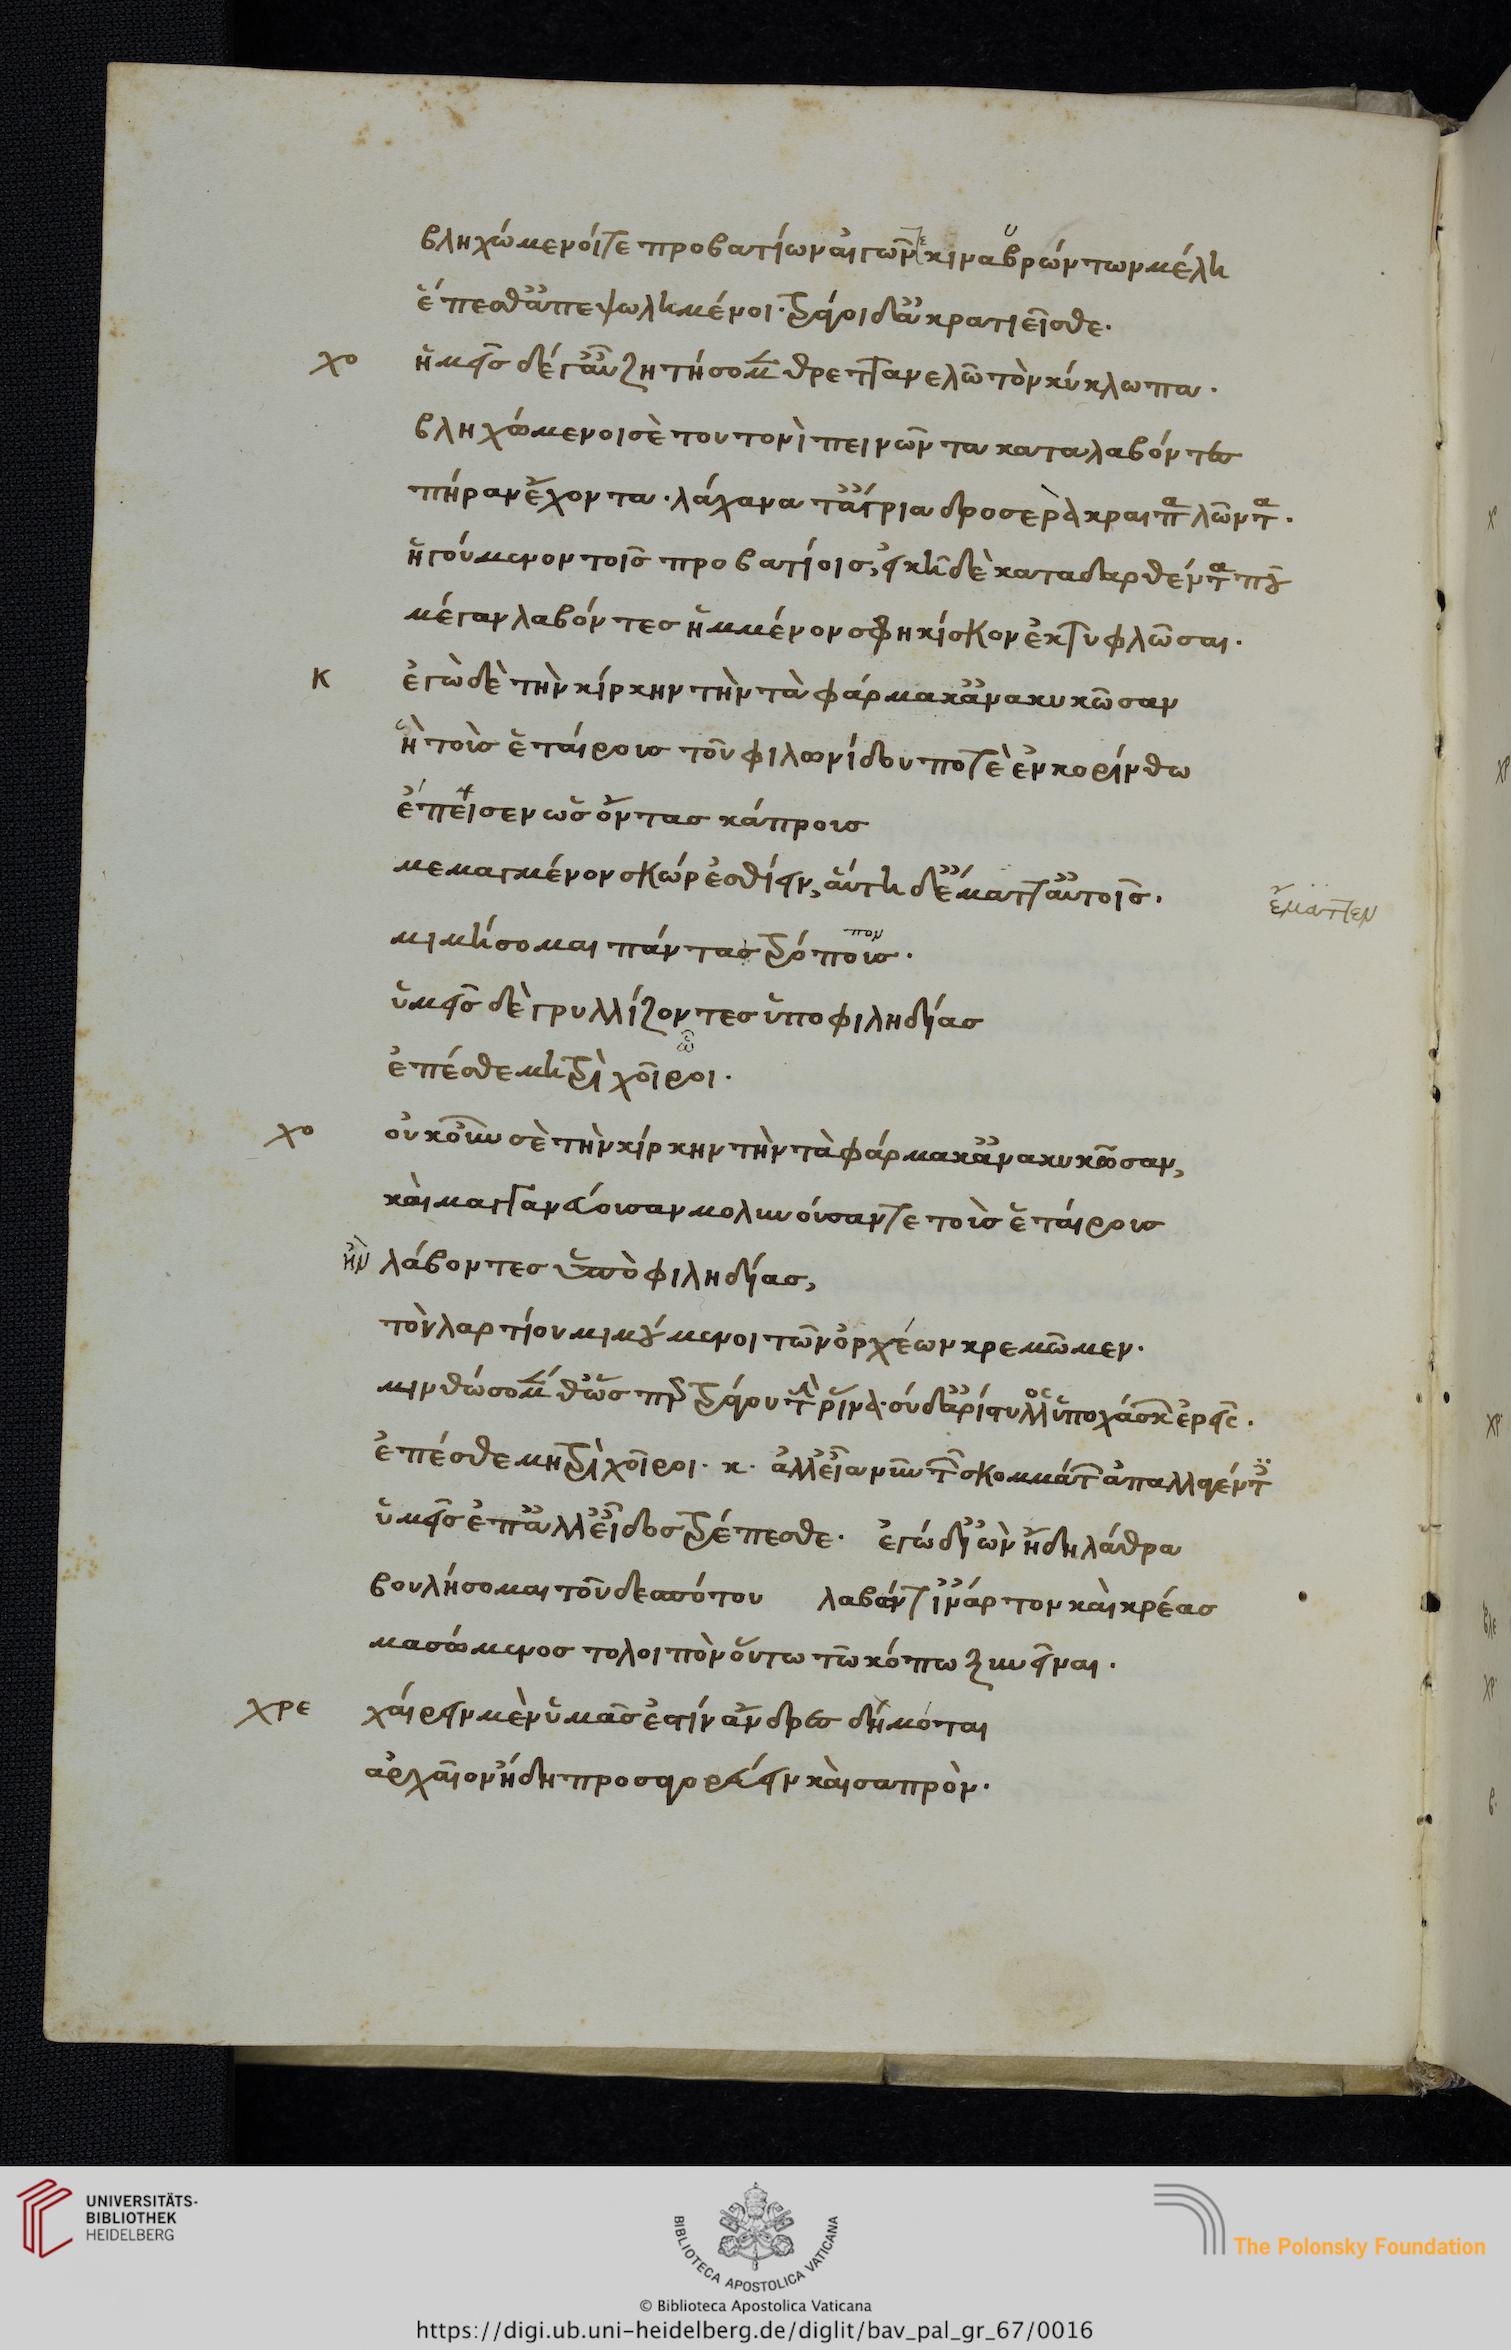 βληχώμενοί τε προβατίων αἰγῶν τε κιναβρώντων μέλη
ἕπεσθ' ἀπεψωλημένοι· τράγοι δ' ἀκρατιεῖσθε.
χο ἡμεῖς δέ γ' αὖ ζητήσομεν θρεττανελῶ τὸν κύκλωπα.
βληχώμενοι σὲ τουτονὶ πεινῶντα καταλαβόντες
πήραν ἔχοντα. λάχανα τ' ἄγρια δροσερὰ κραιπαλῶντα.
ἡγούμενον τοῖς προβατίοις, εἰκῆ δὲ καταδαρθέντα που
μέγαν λαβόντες ἡμμένον σφηκίσκον ἐκτυφλῶσαι.
κ ἐγὼ δὲ τὴν κίρκην τὴν τὰ φάρμακ' ἀνακυκῶσαν
ἣ τοὺς ἑταίρους τοῦ φιλωνίδου ποτὲ ἐν κορίνθω
ἔπεισεν ὡς ὄντας κάπρους
μεμαγμένον σκῶρ ἐσθίειν, αὐτὴ δ' ἔματτ' αὐτοῖς.
ἔματτεν
μιμήσομαι πάντας τρόπους.
πον
ὑμεῖς δὲ γρυλλίζοντες ὑπὸ φιληδίας
ὦ
ἐπέσθε μητρὶ χοῖροι.
χο οὐκοῦν σὲ τὴν κίρκην τὴν τὰ φάρμακ' ἀνακυκῶσαν,
καὶ μαγγανεύουσαν μολύνουσάν τε τοὺς ἑταίρους
ἢν λάβοντες ὑπὸ φιληδίας,
τὸν λαρτίου μιμούμενοι τῶν ὄρχεων κρεμῶμεν.
μινθώσομεν θ' ὥσπερ τράγου τὴν ῥῖνα· σὺ δ' ἀρίστυλλος ὑποχάσκων ἐρεῖς.
ἐπέσθε μητρὶ χοῖροι. κ. ἀλλ' εἶα νῦν τῶν σκομμάτων ἀπαλλαγέντες
ὑμεῖς ἐπ' ἀλλ' εἶδος τρέπεσθε. ἐγὼ δ' ἰὼν ἤδη λάθρα
βουλήσομαι τοῦ δεσπότου λαβών τιν' ἄρτον καὶ κρέας
μασώμενος τολοιπὸν οὕτω τῶ κόπω ξυνεῖναι.
χρε χαίρειν μὲν ὑμᾶς ἐστὶν ἄνδρες δημόται
ἀρχαῖον ἤδη προσαγορεύειν καὶ σαπρὸν.
UNIVERSITÄTS-
BIBLIOTHEK
HEIDELBERG
BIBLIOTECA APOSTOLICA VATICANA
© Biblioteca Apostolica Vaticana
The Polonsky Foundation
https://digi.ub.uni-heidelberg.de/diglit/bav_pal_gr_67/0016